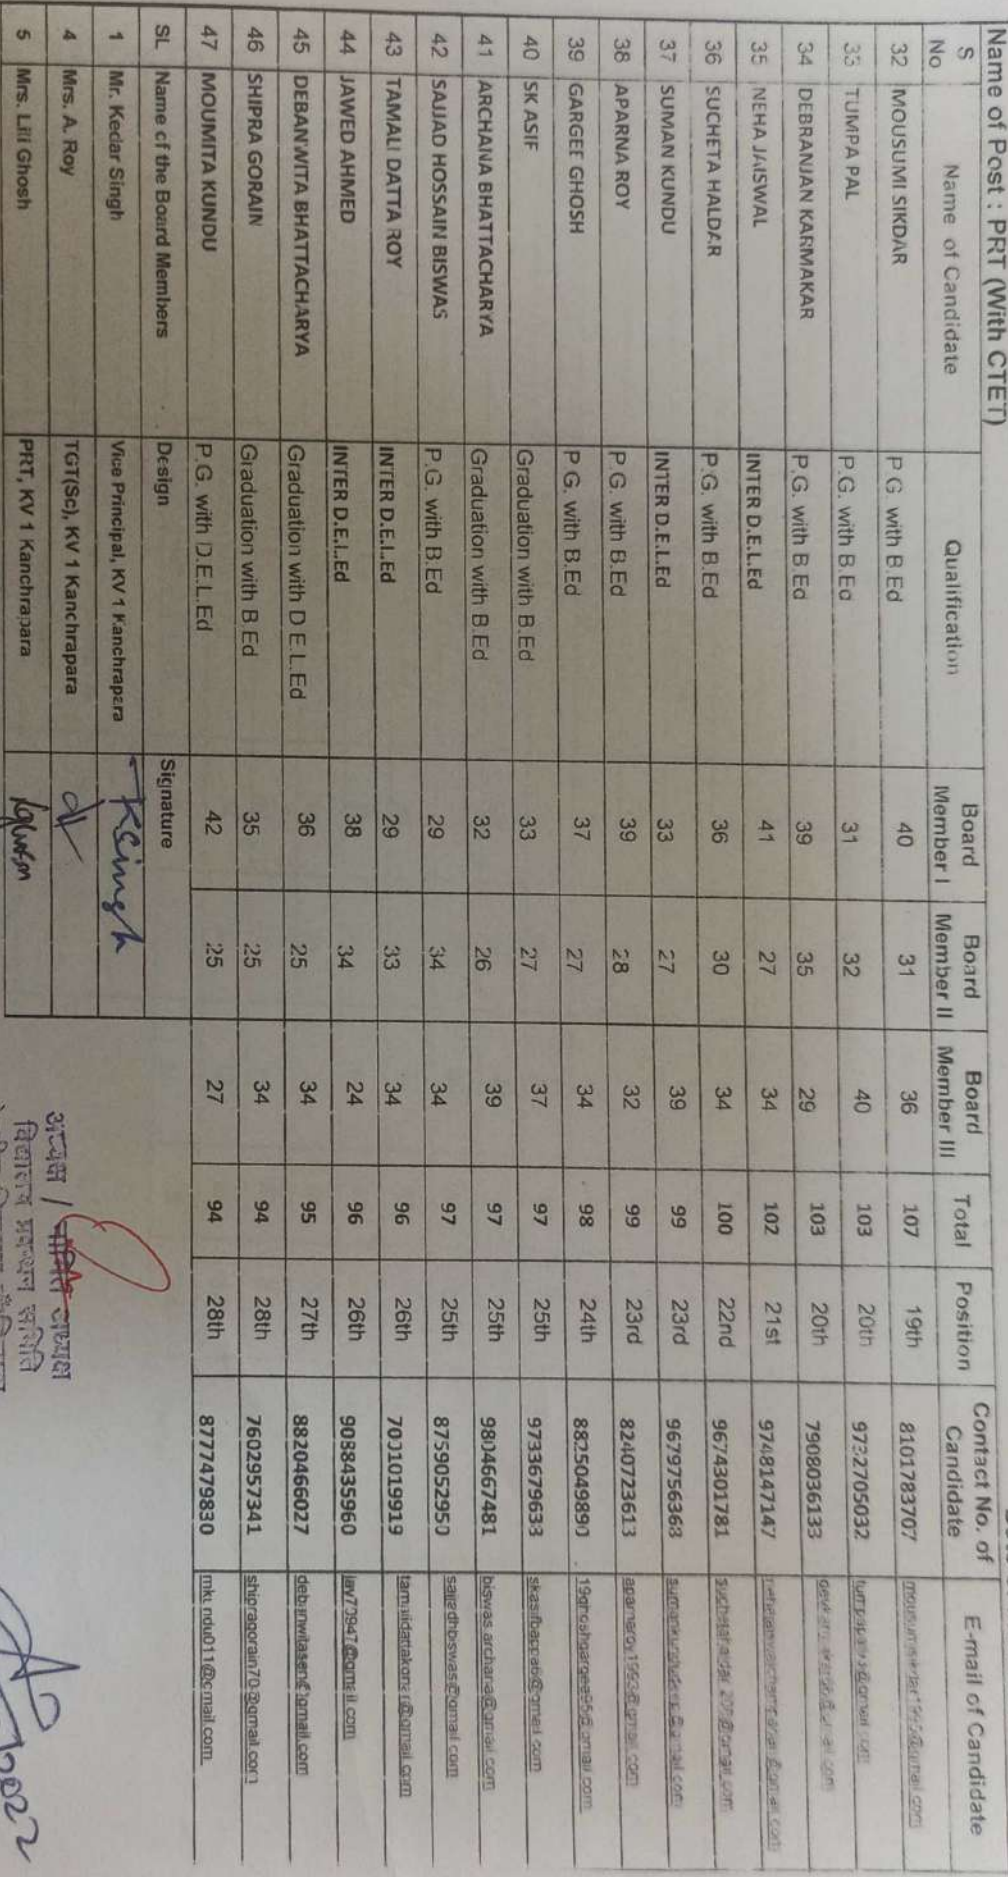 Name of Post : PRT (With CTET)
S No Name of Candidate Qualification Board Member I Board Member II Board Member III Total Position Contact No. of Candidate E-mail of Candidate
32 MOUSUMI SIKDAR P.G. with B.Ed 40 31 36 107 19th 8101783707
33 TUMPA PAL P.G. with B.Ed 31 32 40 103 20th 9732705032
34 DEBRANJAN KARMAKAR P.G. with B.Ed 39 35 29 103 20th 7908036133
35 NEHA JAISWAL INTER D.E.L.Ed 41 27 34 102 21st 9748147147
36 SUCHETA HALDAR P.G. with B.Ed 36 30 34 100 22nd 9674301781
37 SUMAN KUNDU INTER D.E.L.Ed 33 27 39 99 23rd 9679756368
38 APARNA ROY P.G. with B.Ed 39 28 32 99 23rd 8240723613 aparnaroy1993@gmail.com
39 GARGEE GHOSH P.G. with B.Ed 37 27 34 98 24th 8825049890 19ghoshgargee95@gmail.com
40 SK ASIF Graduation with B.Ed 33 27 37 97 25th 9733679633 skasifbappa6@gmail.com
41 ARCHANA BHATTACHARYA Graduation with B.Ed 32 26 39 97 25th 9804667481 biswas.archana@gmail.com
42 SAJJAD HOSSAIN BISWAS P.G. with B.Ed 29 34 34 97 25th 8759052950 sajjadhbiswas@gmail.com
43 TAMALI DATTA ROY INTER D.E.I..Ed 29 33 34 96 26th 7001019919 tamalidattakonar@gmail.com
44 JAWED AHMED INTER D.E.I..Ed 38 34 24 96 26th 9088435960 jav70947@gmail.com
45 DEBANWITA BHATTACHARYA Graduation with D.E.L.Ed 36 25 34 95 27th 8820466027 debanwitasen@gmail.com
46 SHIPRA GORAIN Graduation with B.Ed 35 25 34 94 28th 7602957341 shipragorain70@gmail.com
47 MOUMITA KUNDU P.G. with D.E.L.Ed 42 25 27 94 28th 8777479830 mkundu011@gmail.com
SL Name of the Board Members Design Signature
1 Mr. Kedar Singh Vice Principal, KV 1 Kanchrapara KSingh
4 Mrs. A. Roy TGT(Sc), KV 1 Kanchrapara
5 Mrs. Lili Ghosh PRT, KV 1 Kanchrapara
अध्यक्ष / नामित अध्यक्ष
विद्यालय प्रबन्धन समिति
2022